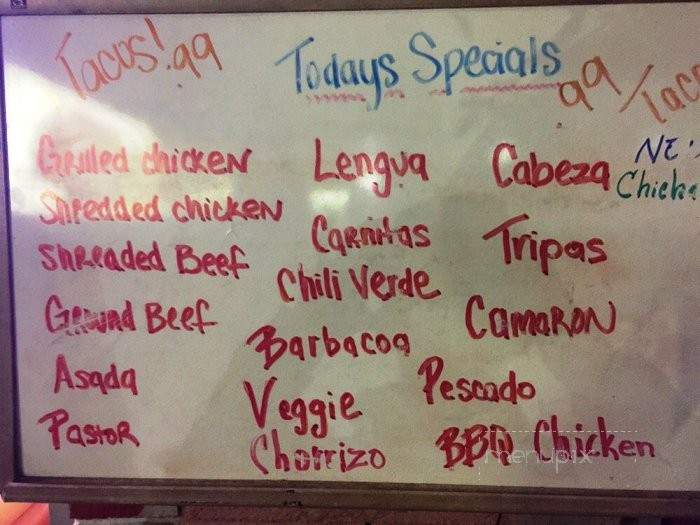 Tacos! .99
Todays Specials
99/Taco
Grilled chicken
Shredded chicken
Shreaded Beef
Ground Beef
Asada
Pastor
Lengua
Carnitas
Chili Verde
Barbacoa
Veggie
Chorrizo
Cabeza
Tripas
Camaron
Pescado
BBQ Chicken
menupix